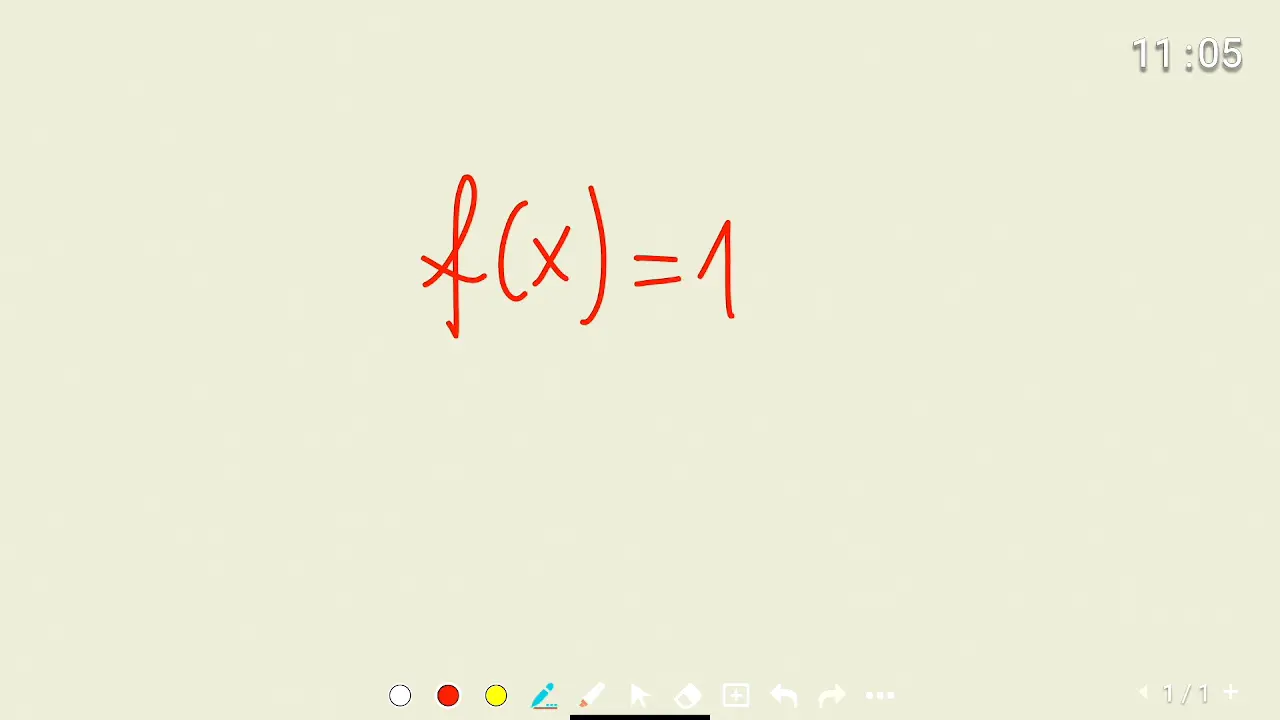 11:05
f(x)=1
1/1